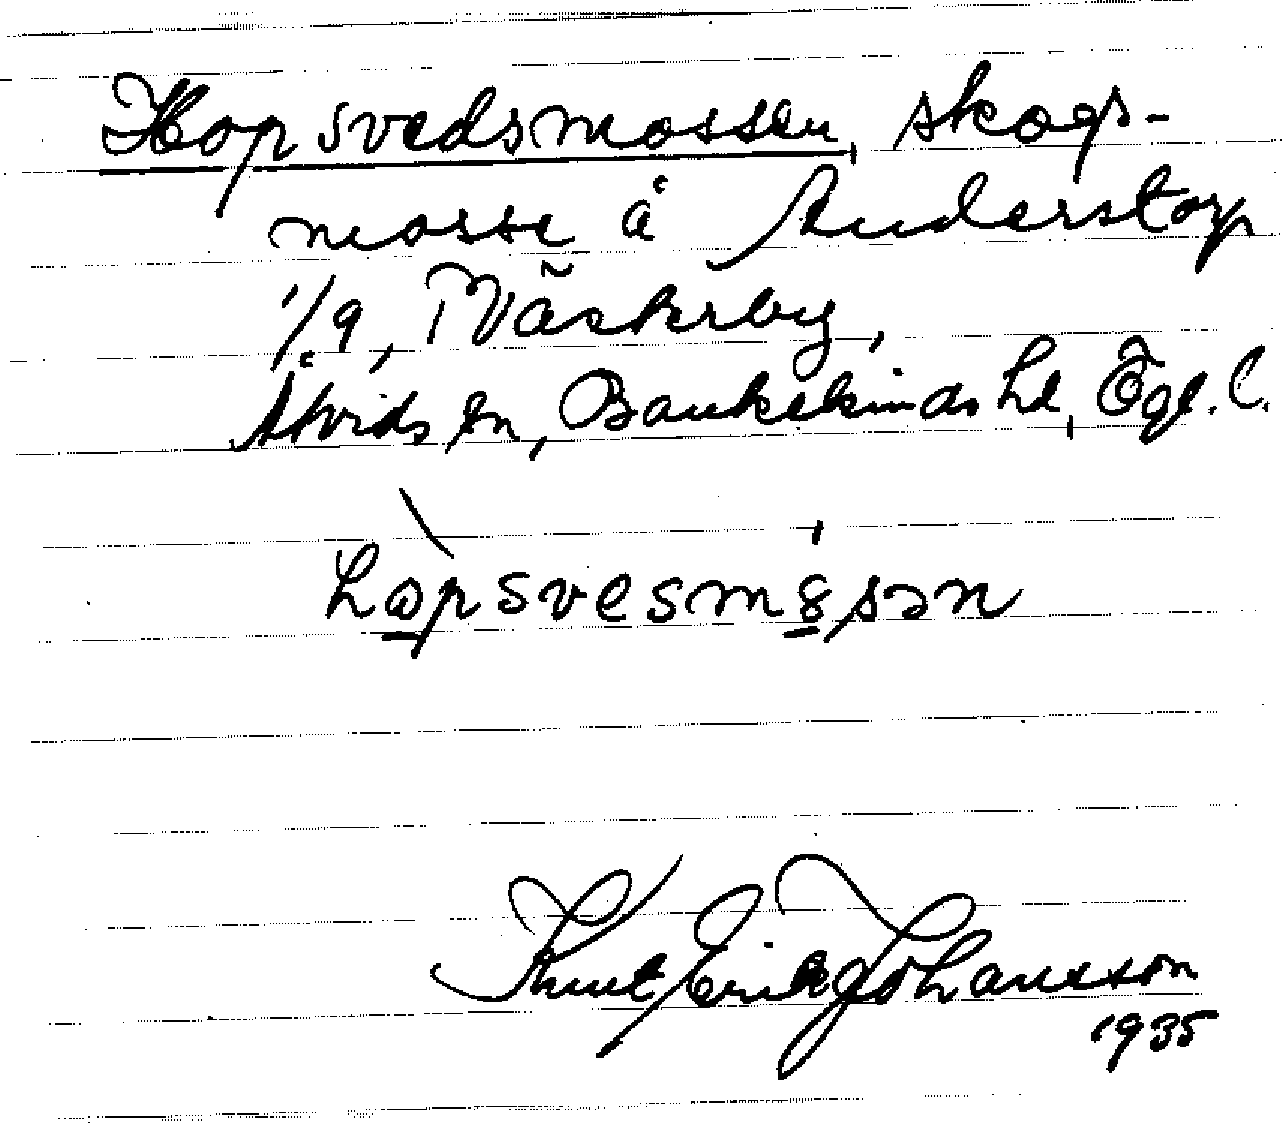 Hopsvedsmossen, skogs-
mosse å Anderstorp
1/9, Väskerby,
Åtvids sn, Bankekinds hd, Ögl. l.
hɷpsvesm8sən
Knut Erik Johansson
1935